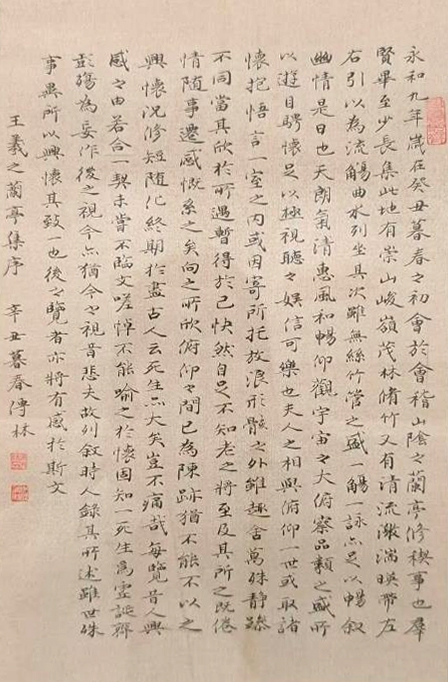 永和九年歲在癸丑暮春之初會於會稽山陰之蘭亭修稧事也羣
賢畢至少長集此地有崇山峻嶺茂林脩竹又有清流激湍暎帶左
右引以為流觴曲水列坐其次雖無絲竹管之盛一觴一詠亦足以暢叙
幽情是日也天朗氣清惠風和暢仰觀宇宙之大俯察品類之盛所
以遊目騁懷足以極視聽之娛信可樂也夫人之相與俯仰一世或取諸
懷抱悟言一室之内或因寄所托放浪形骸之外雖趣舍萬殊靜躁
不同當其欣於所遇暫得於己快然自足不知老之將至及其所之既倦
情随事遷感慨系之矣向之所欣俯仰之間已為陳跡猶不能不以之
興懷況修短随化終期於盡古人云死生亦大矣豈不痛哉每覽昔人興
感之由若合一契未嘗不臨文嗟悼不能喻之於懷固知一死生為虛誕齊
彭殤為妄作後之視今亦猶今之視昔悲夫故列叙時人錄其所述雖世殊
事異所以興懷其致一也後之覽者亦將有感於斯文
王羲之蘭亭集序 辛丑暮春傳林